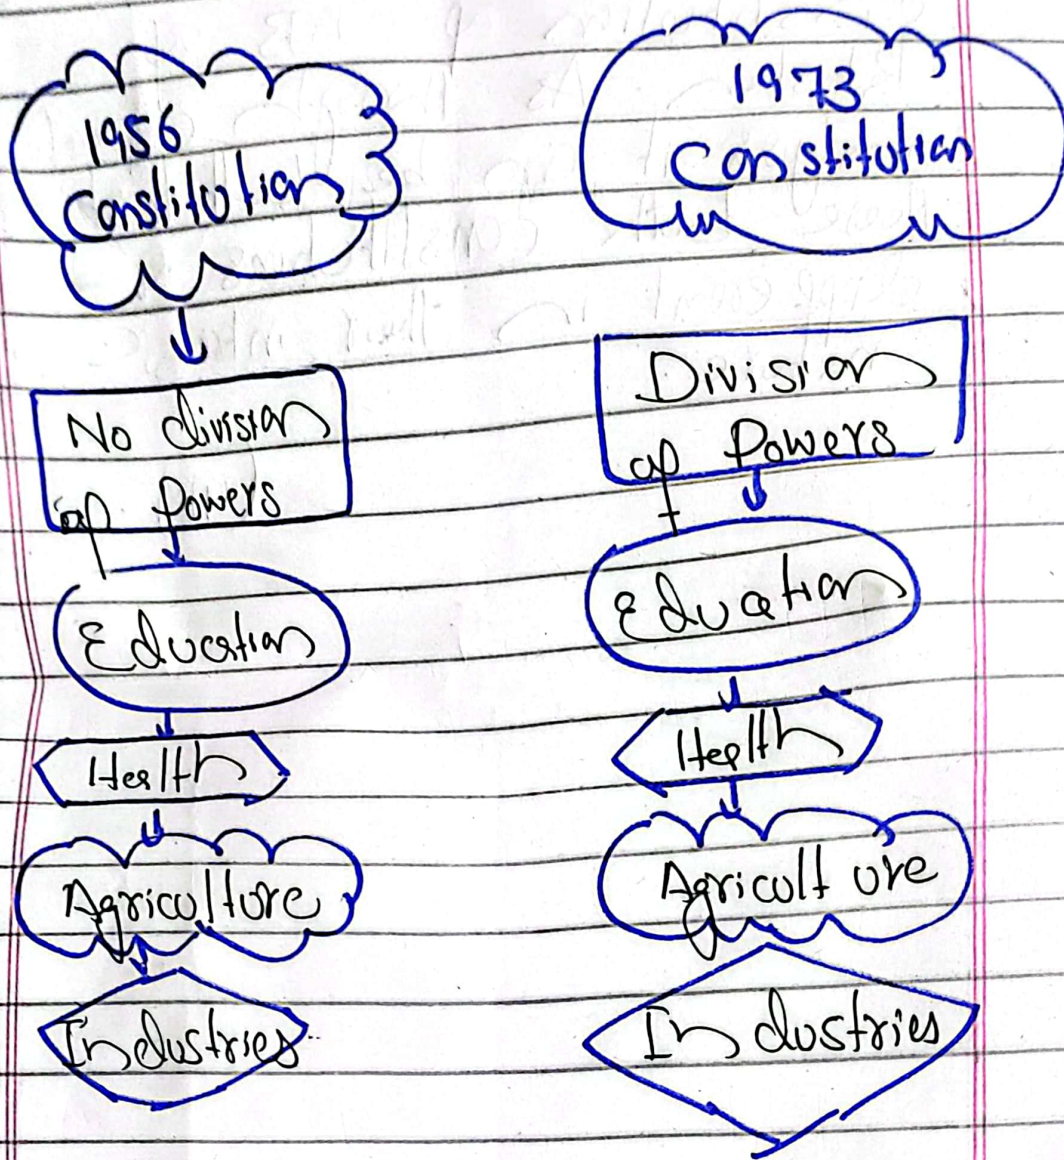 1956
Constitution
No division
of Powers
Education
Health
Agriculture
Industries
1973
Constitution
Division
of Powers
Education
Health
Agriculture
Industries